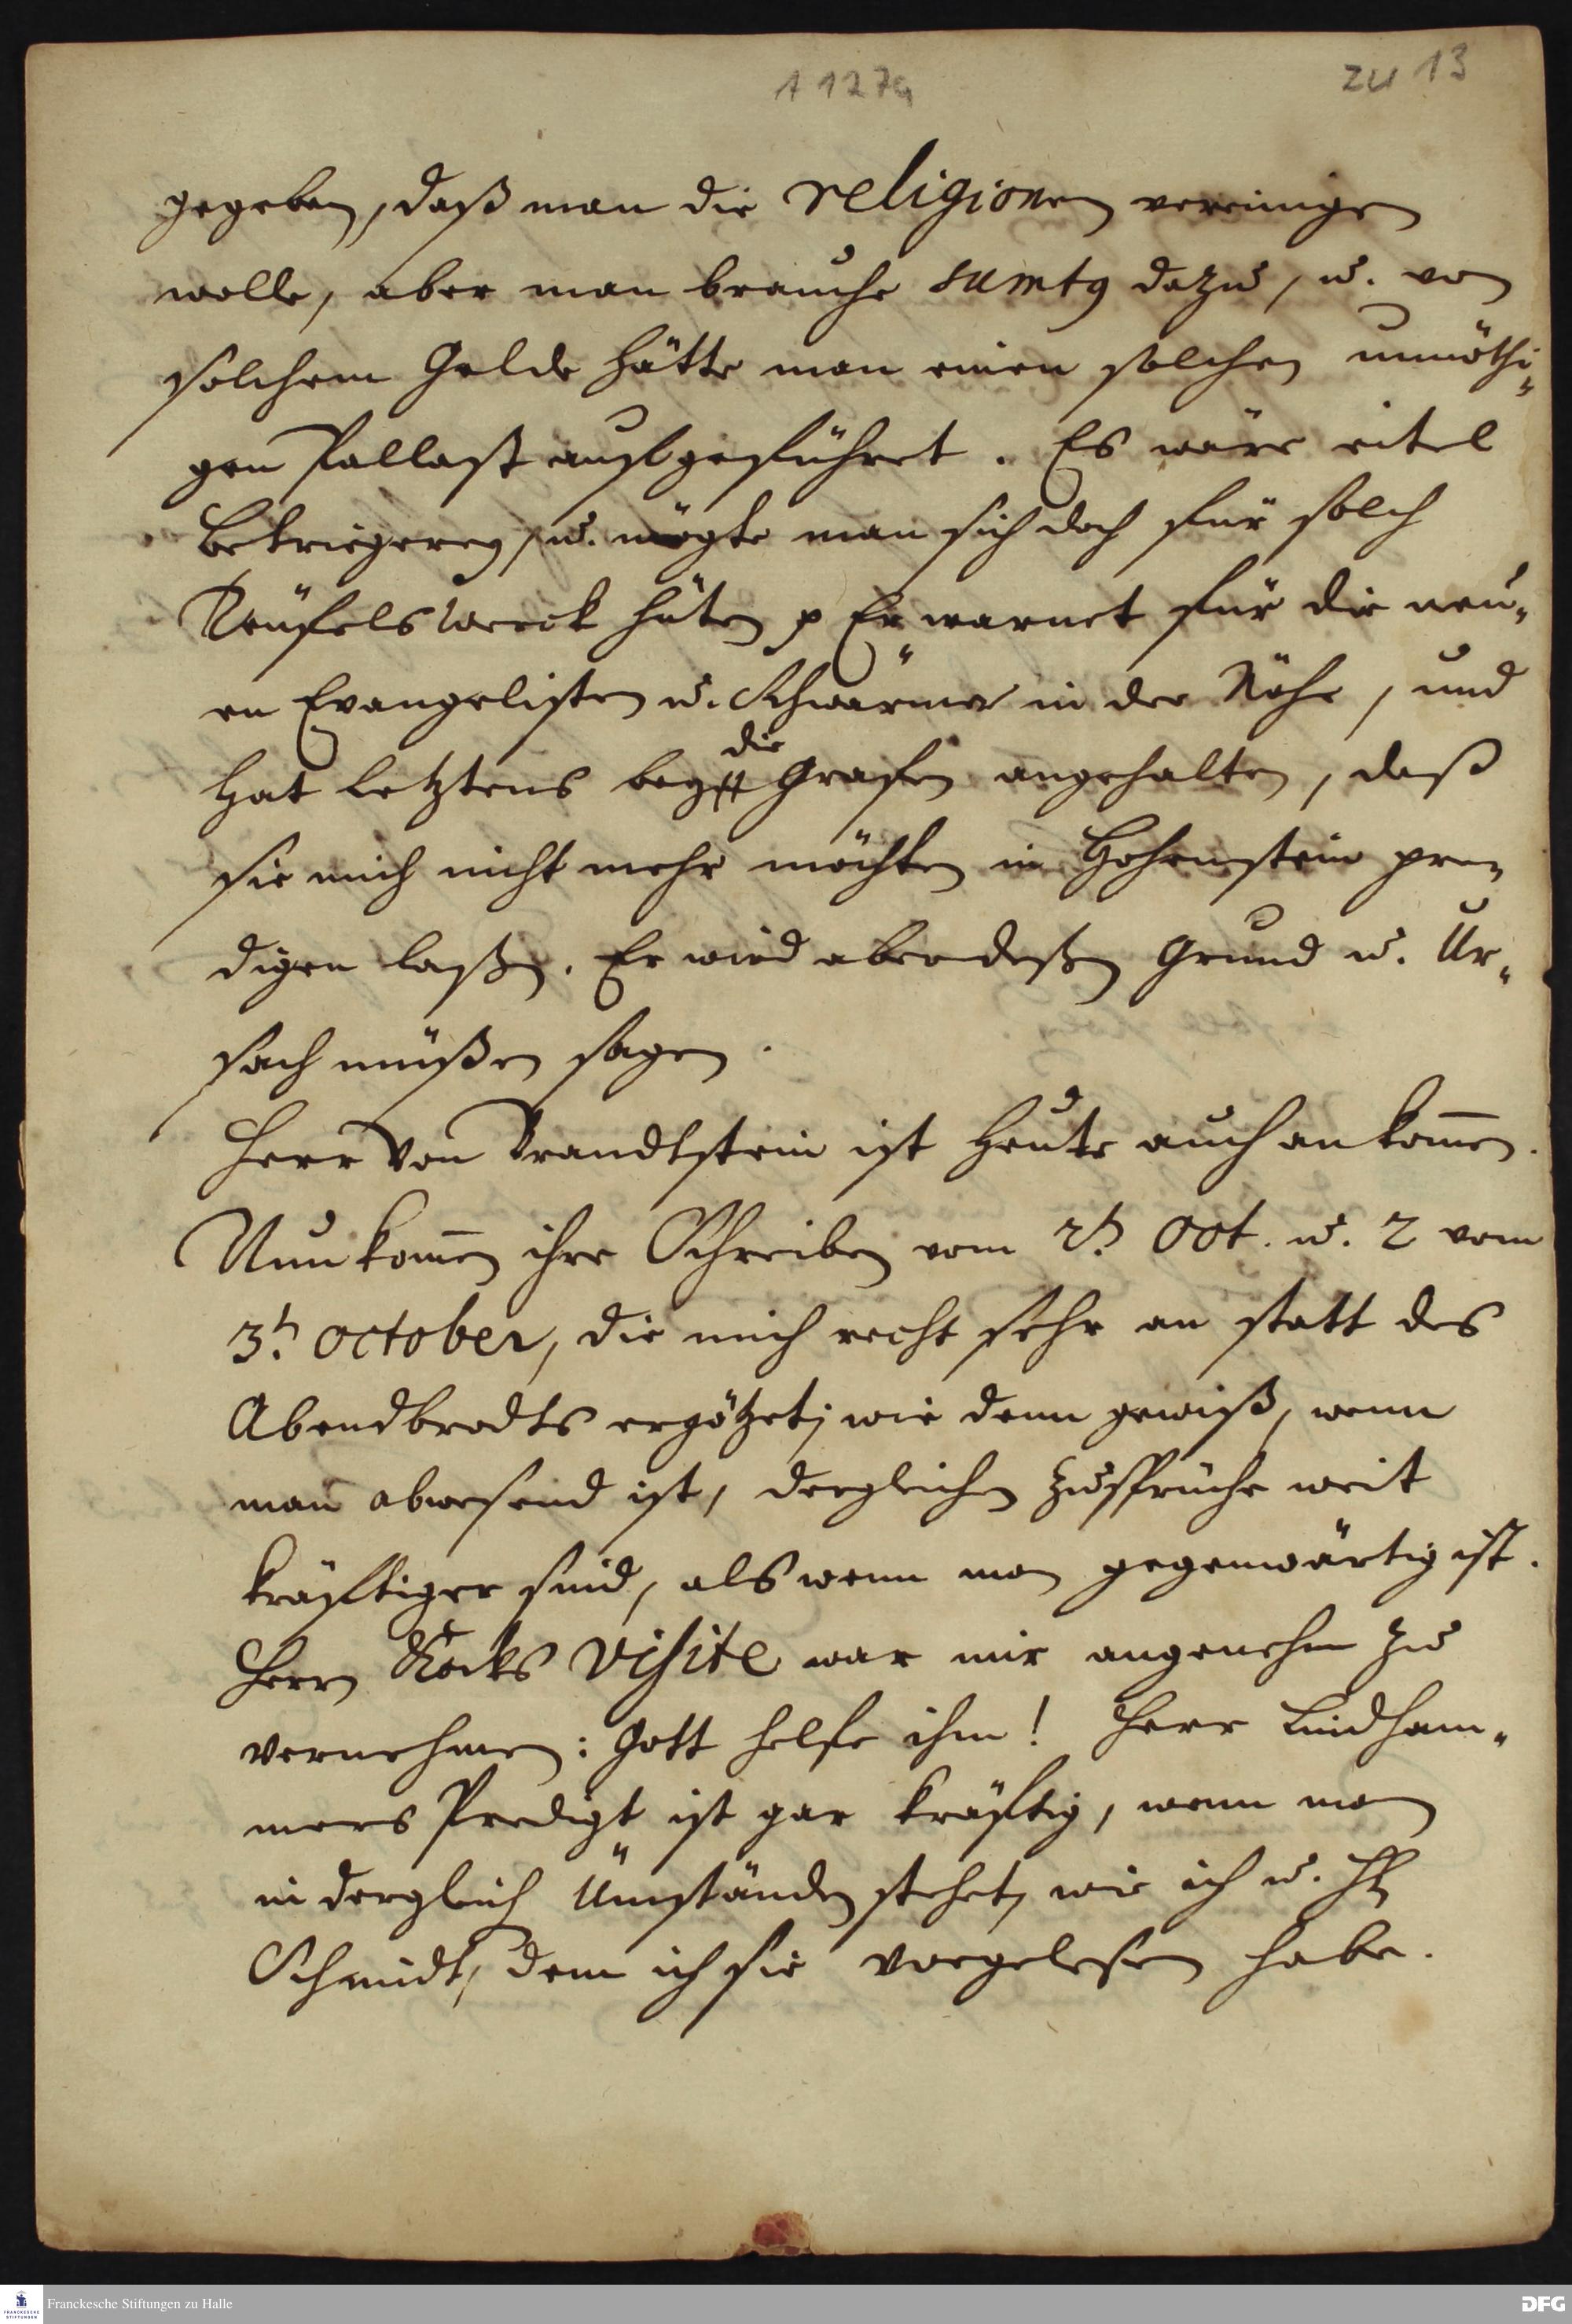 A 127a
zu 13
gegeben, daß man die religionen vereinigen
wolle, aber man brauche sumtg dazu, u. von
solchem Gelde hätte man einen solchen unnöthi-
gen Pallast aufgeführet. Es wäre eitel
Betriegerey, u. mögte man sich doch für solch
Teüfelswerck hüten p Er warnet für die neu-
en Evangelisten u. Schwärmer in der Nähe, und
hat letztens bey die Grafen angehalten, daß
sie mich nicht mehr möchten in Hohenstein pre-
digen laßen. Er wird aber deßen Grund u. Ur-
sach müßen sagen.
Herr von Brandtstein ist heute auch ankom̄en.
Nun kom̄en ihre Schreiben vom 2t. Oct. u. 2 vom
3t. October, die mich recht sehr an statt des
Abendbrodts ergötzet; wie denn gewiß, wenn
man abwesend ist, dergleichen Zusprüche weit
kräftiger sind, als wenn man gegenwärtig ist.
Herrn Rocks Visite war mir angenehm zu
vernehmen: Gott helfe ihm! Herr Lindham-
mers Predigt ist gar kräftig, wenn man
in dergleich Umständen stehet, wie ich u. H.
Schmidt, dem ich sie vorgelesen habe.
FRANCKESCHE STIFTUNGEN
Franckesche Stiftungen zu Halle
DFG